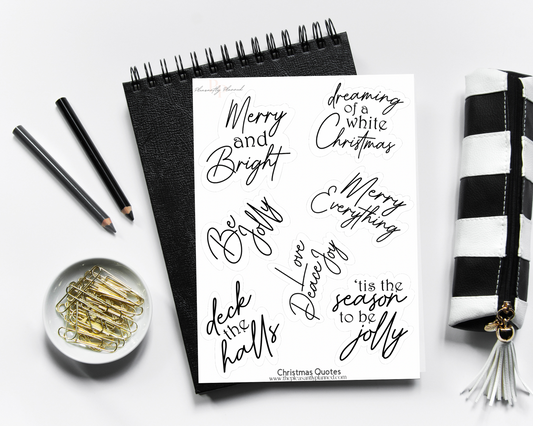 Merry
and
Bright
dreaming
of a
white
Christmas
Be
Jolly
Merry
Everything
Love
Peace Joy
deck
the
halls
'tis the
season
to be
jolly
Christmas Quotes
www.thepleasantlyplanned.com